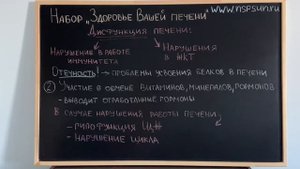 Набор „Здоровье Вашей" печени" www.nspsun.ru
Дисфункция печени:
Нарушение в работе иммунитета
Нарушения в ЖКТ
Отечность! → проблемы усвоения белков в печени
② Участие в обмене витаминов, минералов, гормонов
- выводит отработанные гормоны
В случае нарушения работы печени
- гипофункция ЩЖ
- нарушение цикла